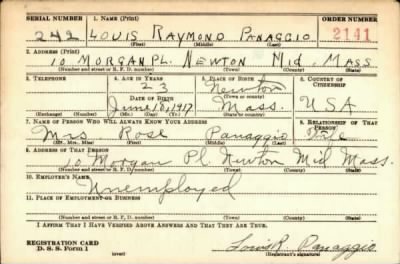 SERIAL NUMBER 1. NAME (Print) ORDER NUMBER
242 LOUIS RAYMOND PANAGGIO 2141
(First) (Middle) (Last)
2. ADDRESS (Print)
10 MORGAN PL. NEWTON Mid. MASS
(Number and street or R. F. D. number) (Town) (County) (State)
3. TELEPHONE 4. AGE IN YEARS 5. PLACE OF BIRTH 6. COUNTRY OF CITIZENSHIP
23 Newton
DATE OF BIRTH (Town or county)
June 10, 1917 Mass. USA
(Exchange) (Number) (Mo.) (Day) (Yr.) (State or country)
7. NAME OF PERSON WHO WILL ALWAYS KNOW YOUR ADDRESS 8. RELATIONSHIP OF THAT PERSON
Mrs. Rose Panaggio Wife
(Mr., Mrs., Miss) (First) (Middle) (Last)
9. ADDRESS OF THAT PERSON
10 Morgan Pl Newton Mid Mass.
(Number and street or R. F. D. number) (Town) (County) (State)
10. EMPLOYER'S NAME
Unemployed
11. PLACE OF EMPLOYMENT OR BUSINESS
(Number and street or R. F. D. number) (Town) (County) (State)
I AFFIRM THAT I HAVE VERIFIED ABOVE ANSWERS AND THAT THEY ARE TRUE.
REGISTRATION CARD
D. S. S. Form 1 (over) Louis R Panaggio
(Registrant's signature)